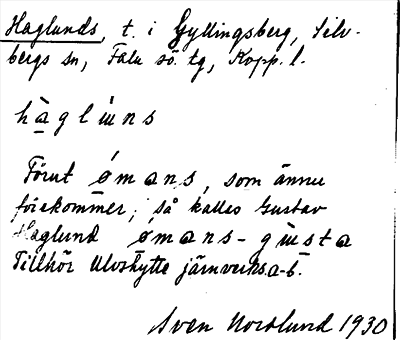 Haglunds, t. i Gyllingsberg, Silv-
bergs sn, Falu sö. tg, Kopp. l.
hàglu̇ns
Förut ømans, som ännu
förekommer; så kallas Gustav
Haglund ømans-gu̇sta
Tillhör Ulvshytte järnverks a.-b.
Sven Norslund 1930